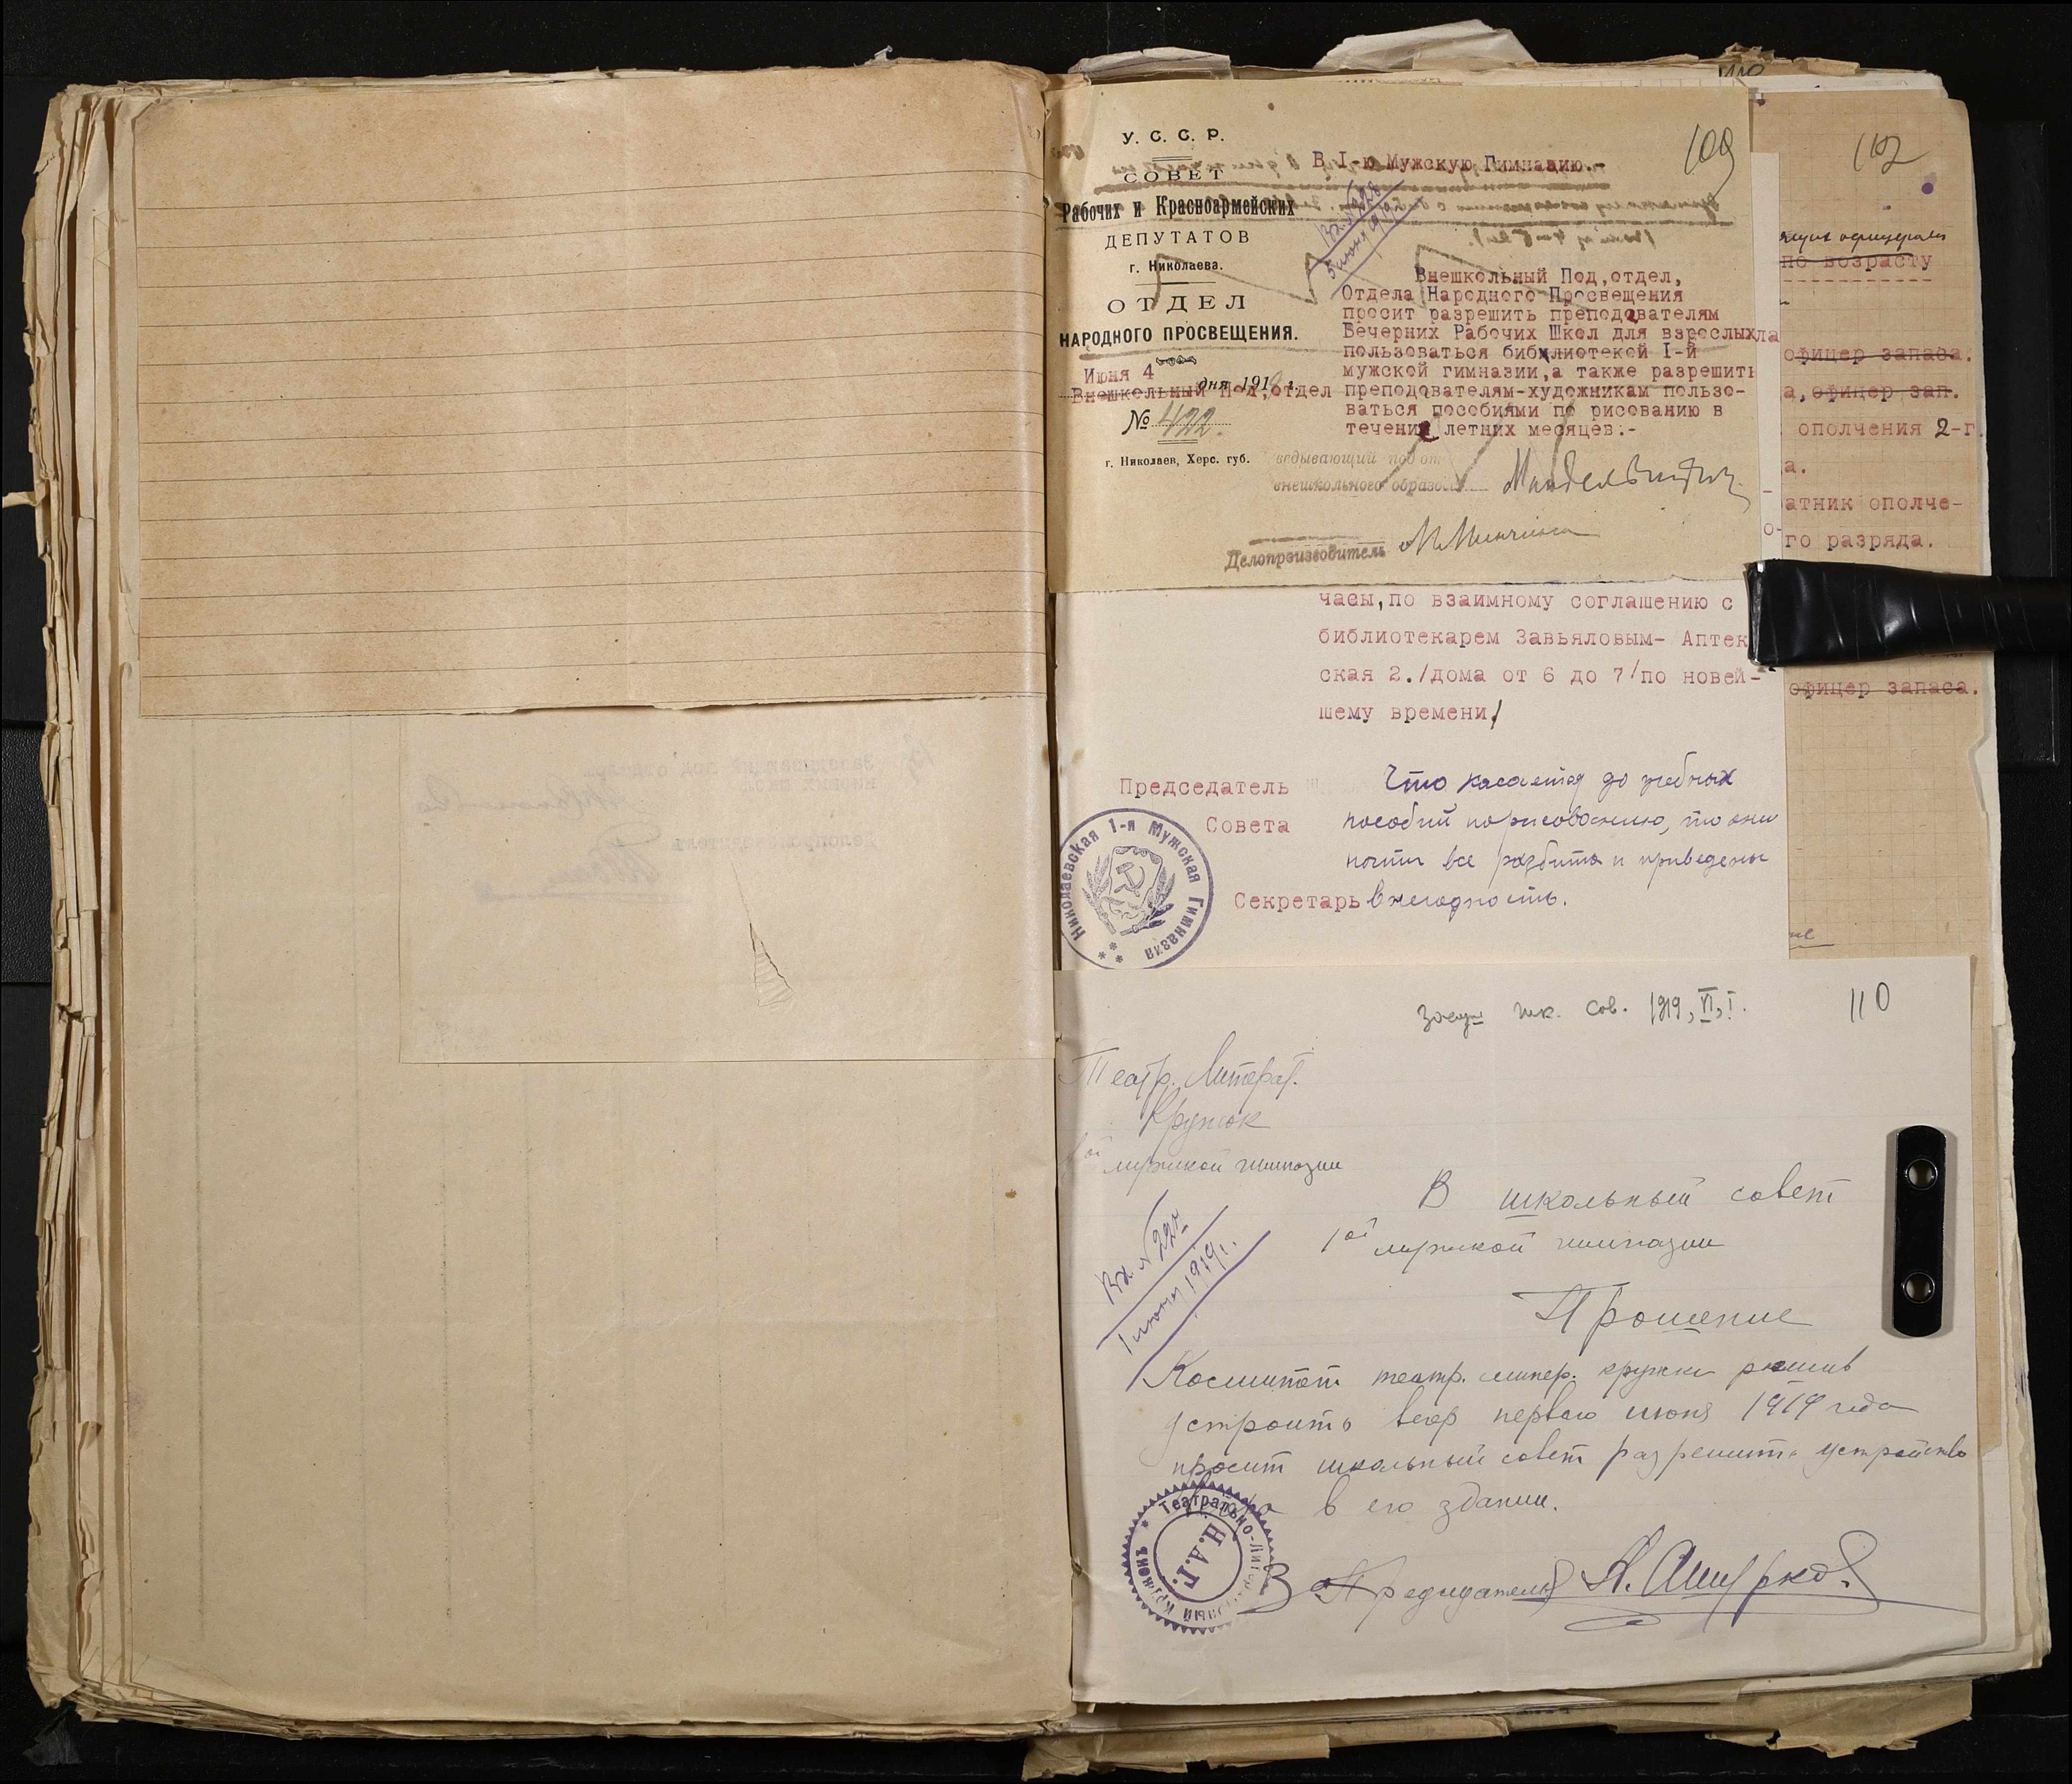 109
У. С. С. Р.
СОВЕТ
Рабочих и Красноармейских
ДЕПУТАТОВ
г. Николаева.
ОТДЕЛ
НАРОДНОГО ПРОСВЕЩЕНИЯ.
Июня 4
дня 1919 г.
Внешкольный Под,отдел
№ 422.
г. Николаев, Херс. губ.
В I-ю Мужскую Гимназию.-
Вх. № 228
5 июня 1919
Внешкольный Под,отдел,
Отдела Народного Просвещения
просит разрешить преподавателям
Вечерних Рабочих Школ для взрослых
пользоваться библиотекой I-й
мужской гимназии,а также разрешить
преподавателям-художникам пользо-
ваться пособиями по рисованию в
течении летних месяцев:-
внешкольного образов
Делопроизводитель
часы,по взаимному соглашению с
библиотекарем Завьяловым- Аптек
ская 2./дома от 6 до 7/по новей-
шему времени/
Что касается до учебных
пособий по рисованию, то они
почти все разбиты и приведены
в негодность.
Председатель
Совета
Секретарь
Николаевская 1-я Мужская Гимназия
112
по возрасту
офицер запаса.
а, офицер зап.
ополчения 2-г
а.
атник ополче-
го разряда.
офицер запаса.
110
засед шк. сов. 1919, VI, I.
Театр. Литерат.
Кружок
1ой мужской гимназии
Вх. № 224
1 июня 1919 г.
В школьный совет
1ой мужской гимназии
Прошение
Комитет театр. литер. кружка решив
устроить вечер первого июня 1919 года
просит школьный совет разрешить устройство
в его здании.
Театрально-Литературный Кружокъ
Н.А.Г.
Председателя